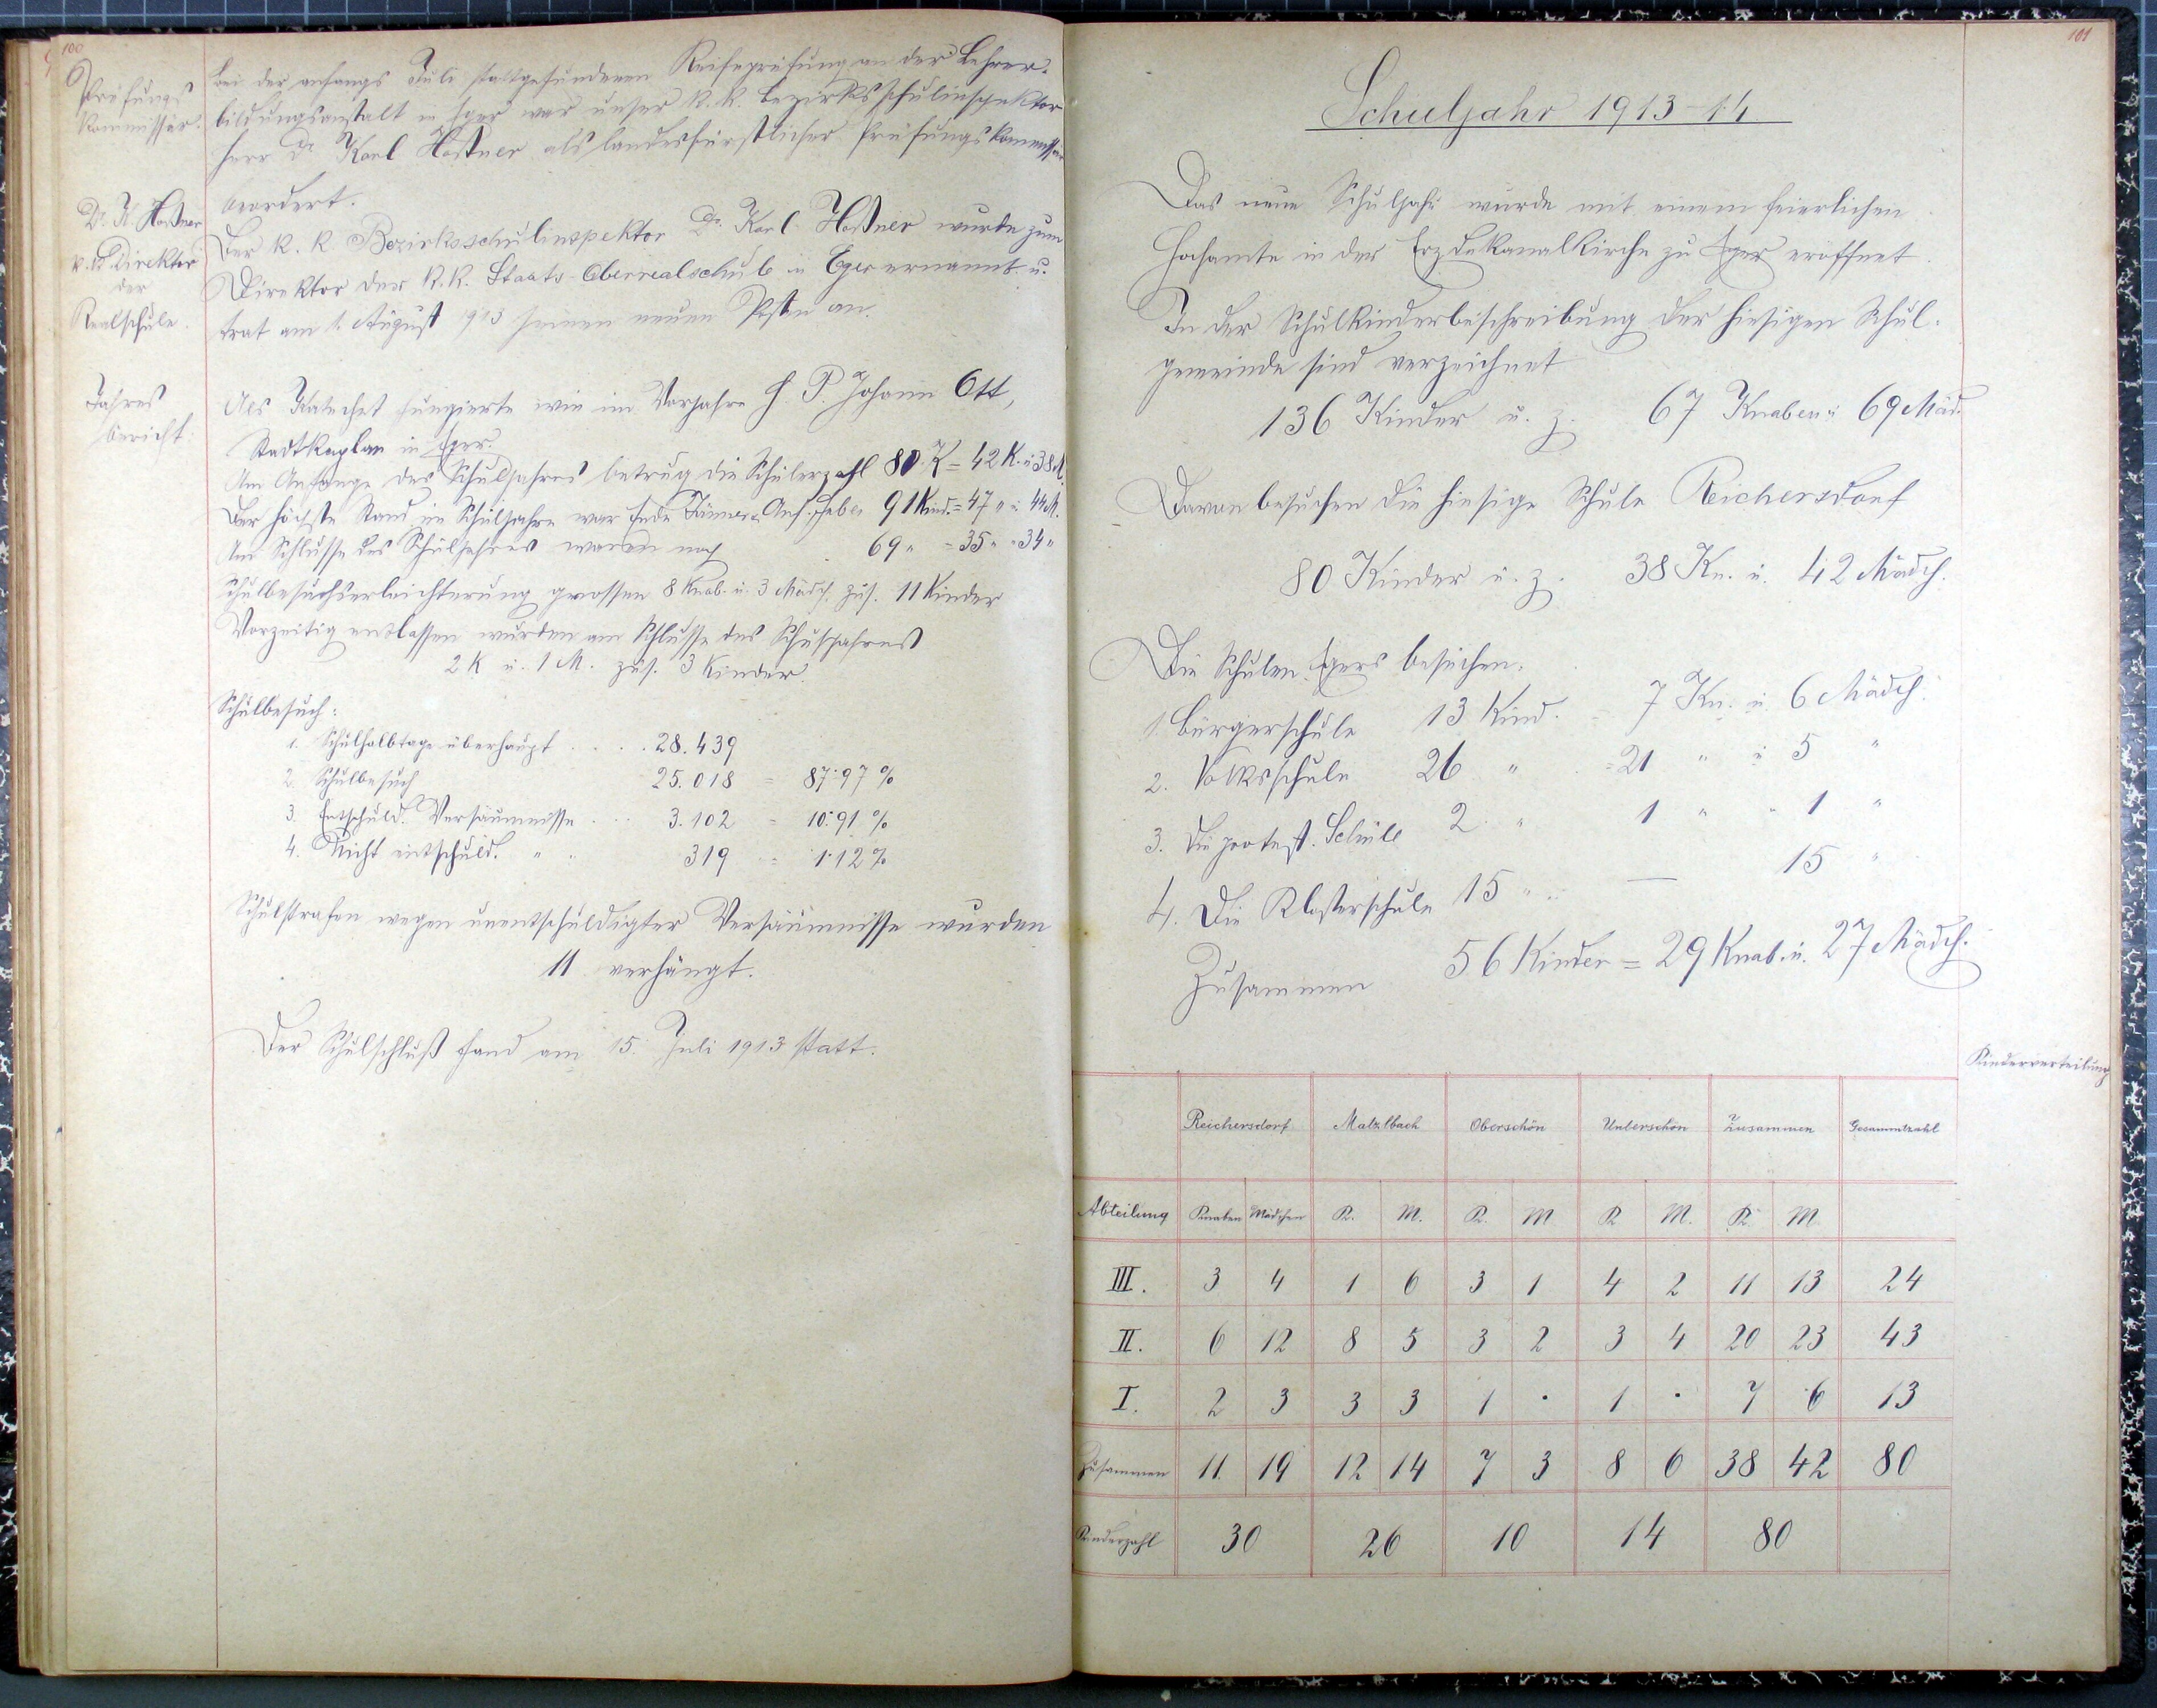 100
Prüfungs
kommissär.
Bei der anfangs Juli stattgefundenen Reifeprüfung an der Lehrer-
bildungsanstalt in Eger war unser k.k. Bezirksschulinspektor
Herr Dr Karl Hoßner als landesfürstlicher Prüfungskommissär
beordert.
Dr. K. Hoßner
Direktor
der
Realschule.
Der k. k. Bezirksschulinspektor Dr. Karl Hoßner wurde zum
Direktor der k.k. Staats-Oberrealschule in Eger ernannt u.
trat am 1. August 1913 seinen neuen Posten an.
Jahres
bericht:
Als Katechet fungierte wie im Vorjahre H. P. Johann Ott,
Stadtkaplan in Eger.
Am Anfange des Schuljahres betrug die Schülerzahl 80 K = 42 K. u. 38 M.
Der höchste Stand im Schuljahre war Ende Jänner u. Anf. Feber 91 Kind. = 47 " u. 44 M.
Am Schlusse des Schuljahres waren noch 69 " = 35 " " 34 "
Schulbesuchserleichterung genossen 8 Knab. u. 3 Mädch. zus. 11 Kinder
Vorzeitig entlassen wurden am Schlusse des Schuljahres
2 K u. 1 M. zus. 3 Kinder.
Schulbesuch:
1. Schulhalbtage überhaupt . . . . 28.439
2. Schulbesuch 25.018 = 87·97 %
3. Entschuld. Versäumnisse . . . 3.102 = 10·91 %
4. Nicht entschuld. " " 319 = 1·12 %
Schulstrafen wegen unentschuldigter Versäumnisse wurden
11 verhängt.
Der Schulschluß fand am 15. Juli 1913 statt.
101
Schuljahr 1913-14
Das neue Schuljahr wurde mit einem feierlichen
Hochamte in der Erzdekanalkirche zu Eger eröffnet.
In der Schulkinderbeschreibung der hiesigen Schul-
gemeinde sind verzeichnet
136 Kinder u. z. 67 Knaben u. 69 Mäd.
Davon besuchen die hiesige Schule Reichersdorf
80 Kinder u. z. 38 Kn. u. 42 Mädch.
Die Schulen Egers besuchen:
1. Bürgerschule 13 Kind. = 7 Kn. u. 6 Mädch.
2. Volksschule 26 " = 21 " u. 5 "
3. Die protest. Schule 2 " 1 " " 1 "
4. Die Klosterschule 15 " — 15 "
Zusammen 56 Kinder = 29 Knab. u. 27 Mädch.
Kinderverteilung
Reichersdorf Matzlbach Oberschön Unterschön Zusammen Gesammtzahl
Abteilung Knaben Mädchen K. M. K. M K M. K. M
III. 3 4 1 6 3 1 4 2 11 13 24
II. 6 12 8 5 3 2 3 4 20 23 43
I. 2 3 3 3 1 · 1 · 7 6 13
Zusammen 11 19 12 14 7 3 8 6 38 42 80
Kinderzahl 30 26 10 14 80